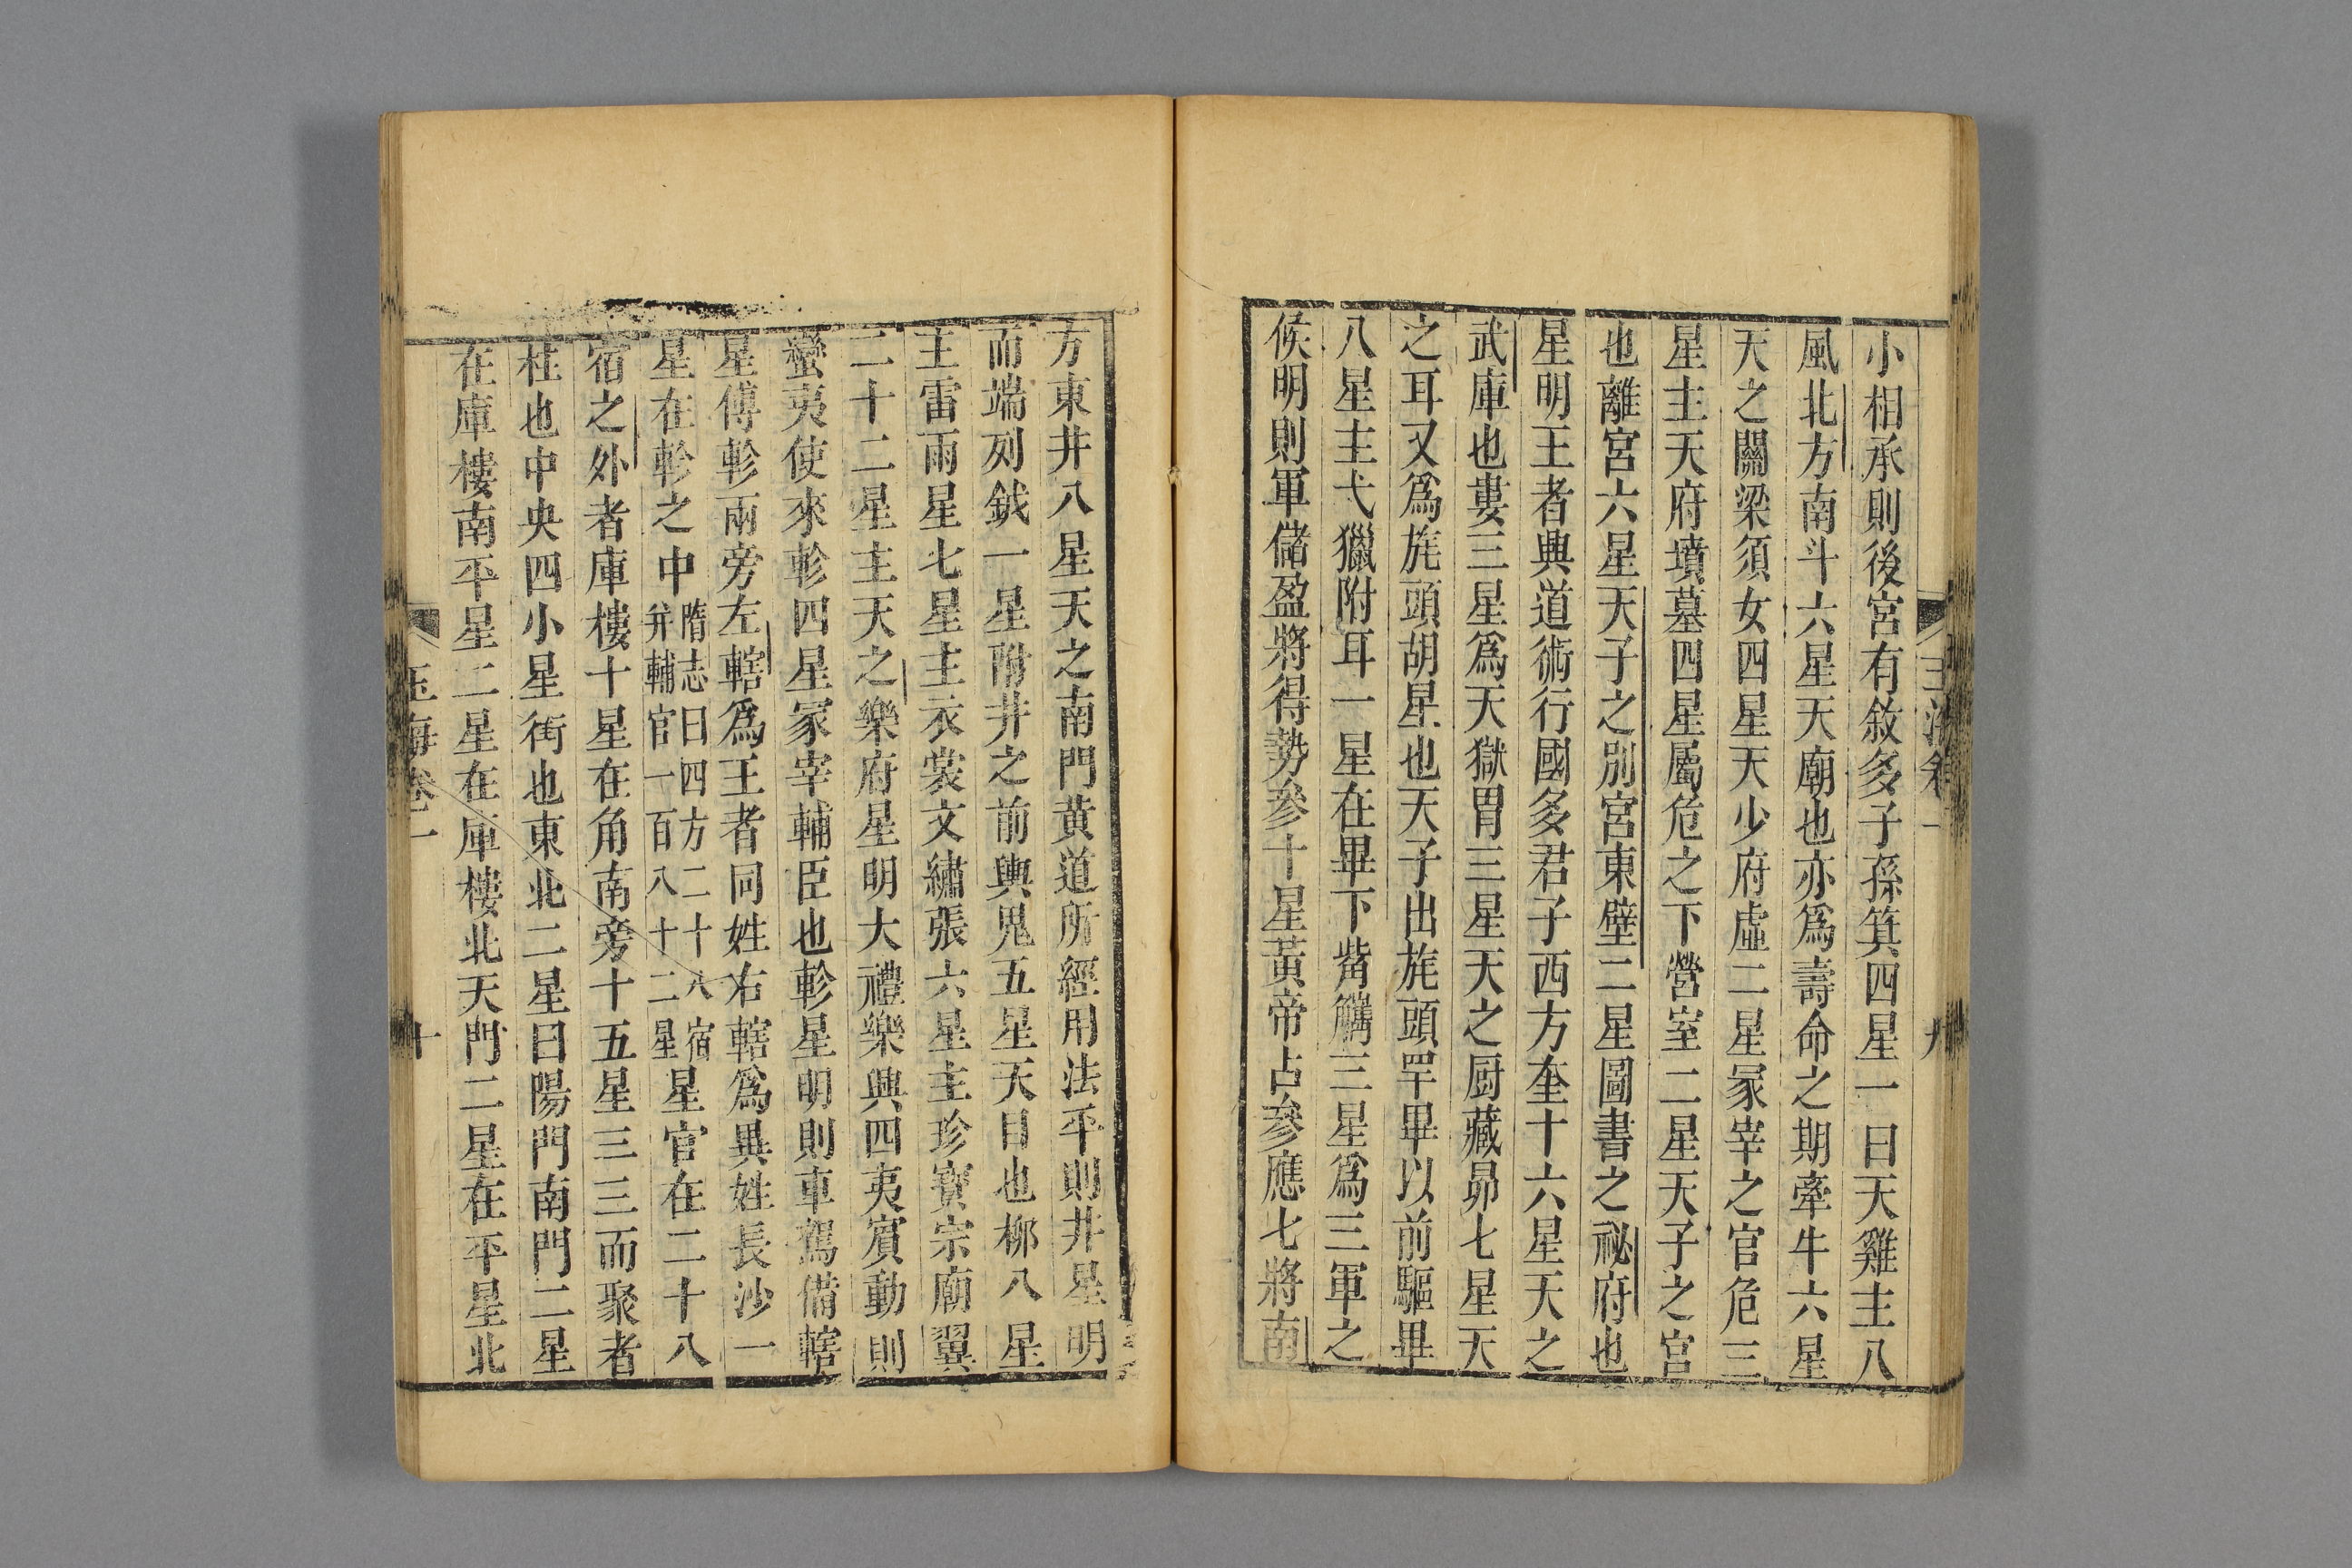 小相承則後宮有敘多子孫箕四星一曰天雞主八
風北方南斗六星天廟也亦爲壽命之期牽牛六星
天之關梁須女四星天少府虛二星冢宰之官危三
星主天府墳墓四星屬危之下營室二星天子之宮
也離宮六星天子之別宮東壁二星圖書之祕府也
星明王者興道術行國多君子西方奎十六星天之
武庫也婁三星爲天獄胃三星天之厨藏昴七星天
之耳又爲旄頭胡星也天子出旄頭罕畢以前驅畢
八星主弋獵附耳一星在畢下觜觿三星爲三軍之
候明則軍儲盈將得勢參十星黃帝占參應七將南
方東井八星天之南門黄道所經用法平則井星明
而端列鉞一星附井之前輿鬼五星天目也栁八星
主雷雨星七星主衣裳文繡張六星主珍寳宗廟翼
二十二星主天之樂府星明大禮樂興四夷賓動則
蠻夷使來軫四星冢宰輔臣也軫星明則車駕備轄
星傅軫兩旁左轄爲王者同姓右轄爲異姓長沙一
星在軫之中隋志曰四方二十八宿
并輔官一百八十二星星官在二十八
宿之外者庫樓十星在角南旁十五星三三而聚者
柱也中央四小星衡也東北二星曰陽門南門二星
在庫樓南平星二星在庫樓北天門二星在平星北
玉海卷二
十